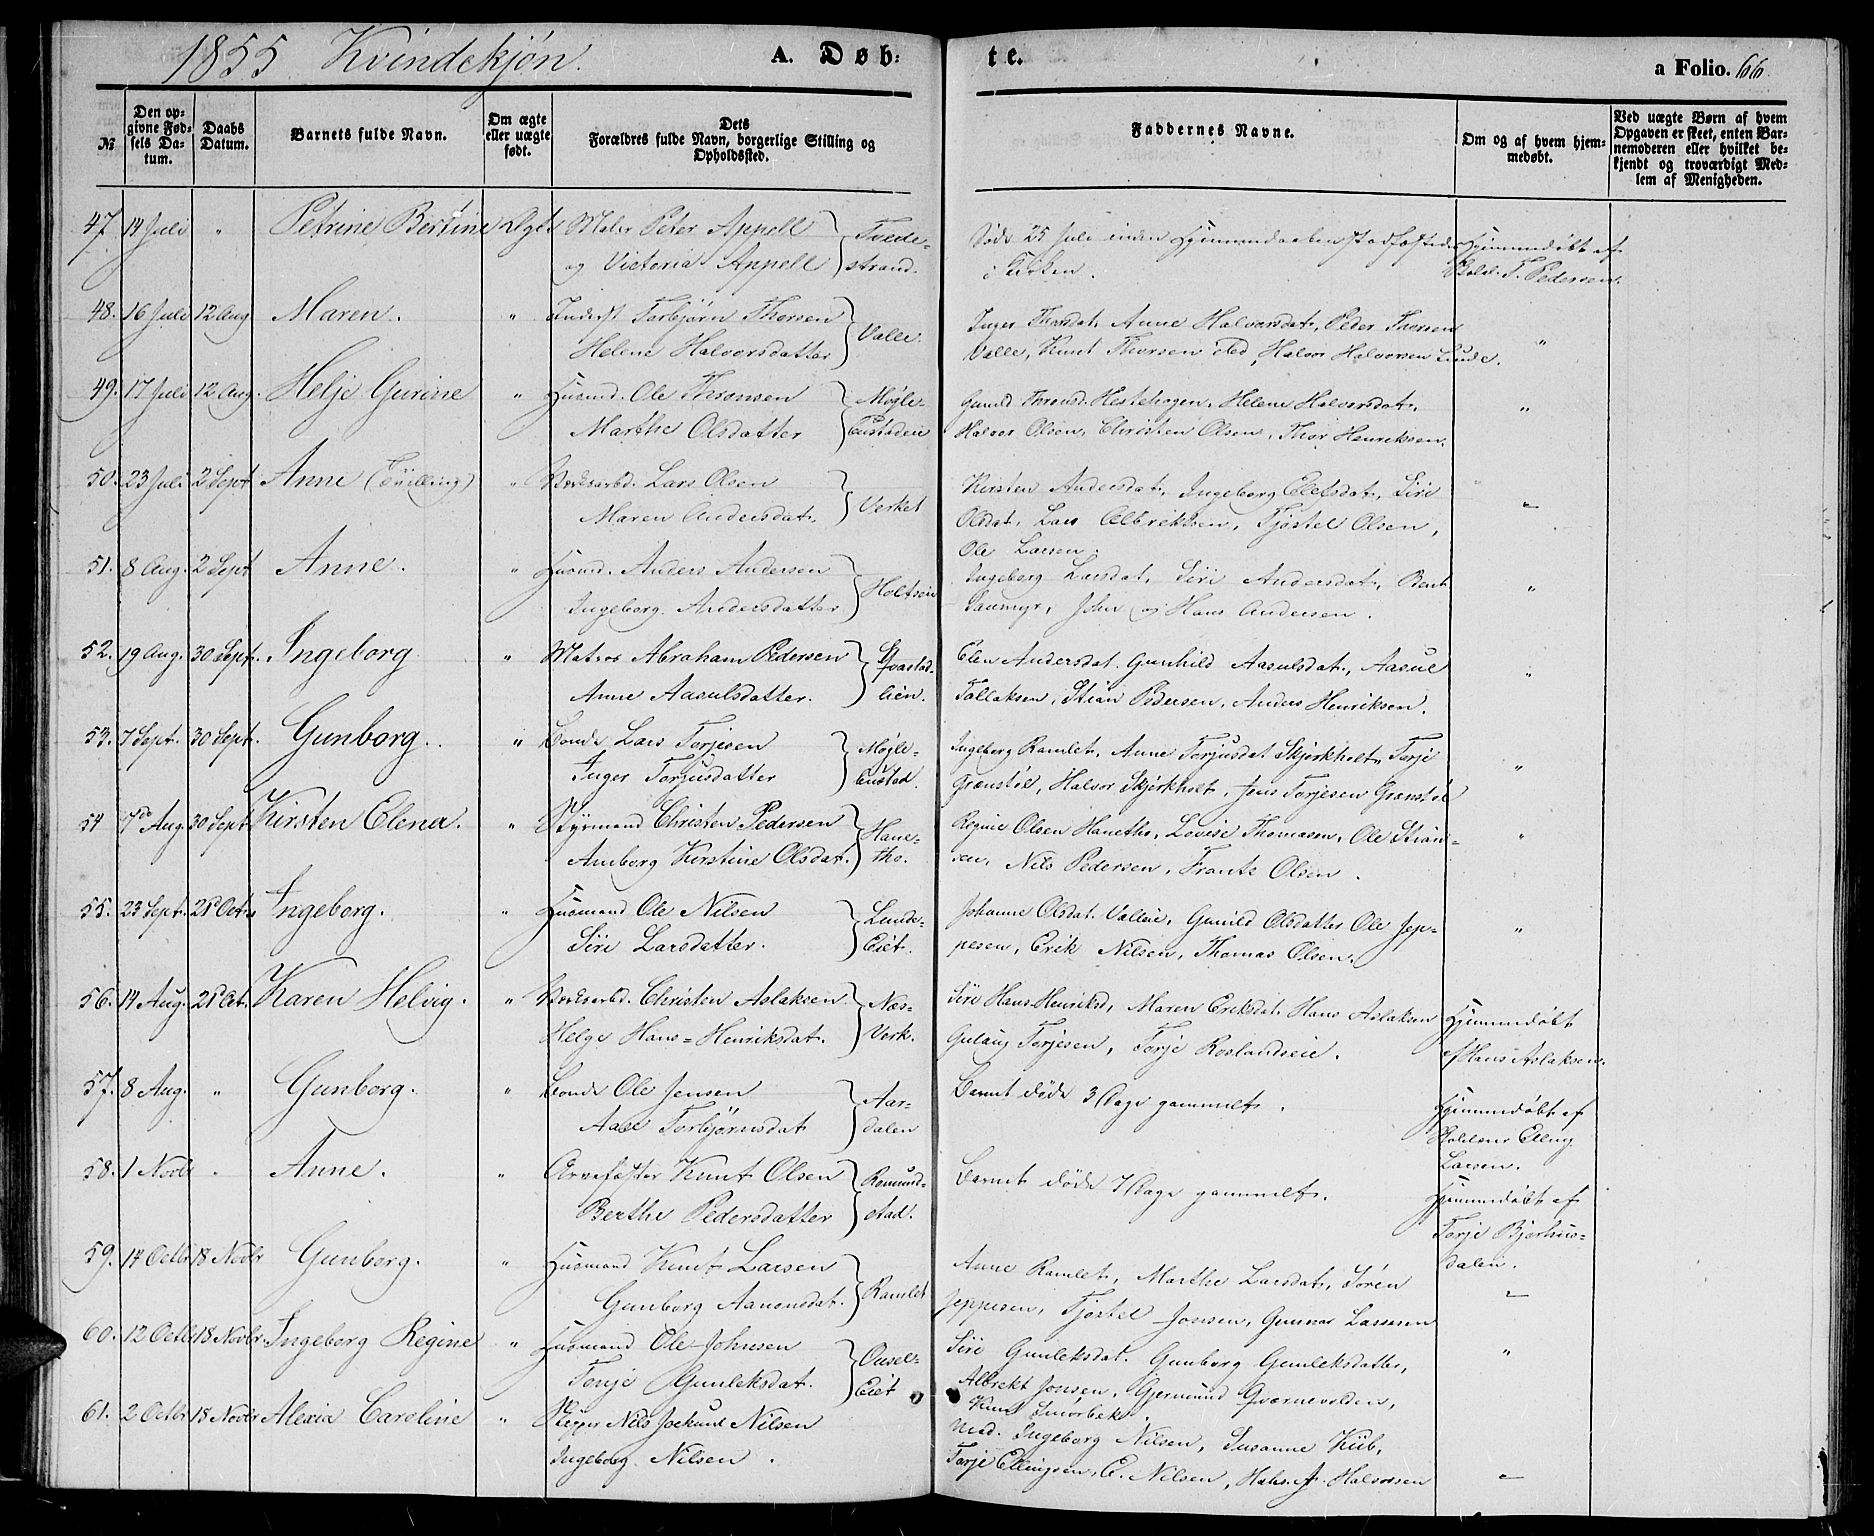 1855 Kvindekjøn. A. Døb: te. a Folio. 66.
№ | Den opgivne Fødsels Datum. | Daabs Datum. | Barnets fulde Navn. | Om ægte eller uægte født. | Dets Forældres fulde Navn, borgerlige Stilling og Opholdssted. | Faddernes Navne. | Om og af hvem hjemmedøbt. | Ved uægte Børn af hvem Opgaven er skeet, enten Barnemoderen eller hvilket bekjendt og troværdigt Medlem af Menigheden.
47. 14 Juli " Petrine Bertine Ægte Maler Peter Appell Tvede- Døde 25 Juli inden Hjemmedaaben stadfæstedes Hjemmedøbt af
og Victoria Appell strand. i Kirken. T. Pedersen.
48. 16 Juli 12 Aug Maren. " Inderst Torbjørn Thorsen Valle. Inger Thorsdat., Anne Halvorsdat., Peder Thorsen
Helene Halvorsdatter Valle, Knut Thorsen sted, Halvor Halvorsen Lunde. "
49. 17 Juli 12 Aug. Helje Gurine " Husmd. Ole Thronsen Møgle- Gunild Thronsd. Hestehagen, Helene Halvorsdat., "
Marthe Olsdatter Eustadeie Halvor Olsen, Christen Olsen, Thor Henriksen.
50. 23 Juli 2 Sept Anne (Tvilling) " Værksarbd. Lars Olsen Verket Kirsten Andersdat., Ingeborg Elefsdat., Siri
Maren Andersdat. Olsdat., Lars Albriktsen, Tjøstel Olsen, "
Ole Larsen.
51. 8 Aug. 2 Sept Anne. " Husmd. Anders Andersen Holtseie Ingeborg Larsdat., Siri Andersdat., Bent
Ingeborg Andersdatter Saumyr, John og Hans Andersen. "
52. 19 Aug. 30 Sept. Ingeborg " Matros Abraham Pedersen Qvastad- Elen Andersdat. Gunhild Aasulsdat., Aasul
Anne Aasulsdatter. lien. Tallaksen, Stian Pedersen, Anders Henriksen. "
53. 7 Sept. 30 Sept. Gunborg. " Bonde Lars Torjesen Møgle- Ingeborg Ramlet, Anne Torjusdat Skjerkholt, Torje
Inger Torjusdatter Eustad. Grønstøl, Halvor Skjerkholt, Jens Torjesen Grønstøl "
54 7de Aug. 30 Sept. Kirsten Elena. " Styrmand Christen Pedersen Hane- Regine Olsen Haneths, Lovise Thomasen, Ole Stian- "
Amborg Kirstine Olsdat. tho. sen, Nils Pedersen, Frants Olsen.
55. 23 Sept. 21 Oct. Ingeborg. " Husmand Ole Nilsen Lunde- Johanne Olsdat. Valleie, Gunild Olsdatter Ole Jep-
Siri Larsdatter. Eiet. pesen, Erik Nilsen, Thomas Olsen. "
56. 14 Aug. 21 Oct. Karen Helvig. " Værksarbd. Christen Aslaksen Næs- Siri Hans-Henriksd., Maren Eriksdat. Hans Aslaksen Hjemmedøbt
Helge Hans=Henriksdat. Verk. Gulaug Torjesen, Torje Roslandseie. af Hans Aslaksen.
57. 8 Aug. " Gunborg. " Bonde Ole Jensen Aar- Barnet døde 3 Dage gammelt. Hjemmedøbt af
Aase Torbjørnsdat dalen Elling
Larsen.
58. 1 Novbr " Anne. " Arvefæster Knut Olsen Romund- Barnet døde 7 Dage gammelt. Hjemmedøbt af
Berthe Pedersdatter stad. Torje Bjørhus-
dalen.
59. 14 Octbr 18 Novbr Gunborg. " Husmand Knut Larsen Ramlet Anne Ramlet, Marthe Larsdat., Sören
Gunborg Aanonsdat. Jeppesen, Tjøstel Jonsen, Gunnar Lassesen "
60. 12 Octbr 18 Novbr. Ingeborg Regine " Husmand Ole Johnsen Ousel- Siri Gunleksdat. Gunborg Gunleksdatter, "
Tonje Gunleksdat. Eiet Albrekt Jonsen, Gjermund Qværnevolden,
Knut Smörbek.
61. 2 Octbr 18 Novbr Alexia Caroline " Skipper Nils Joekund Nilsen Mad. Ingeborg Nilsen, Susanne Kiib,
Ingeborg Nilsen. Torje Ellingsen, E. Nilsen, Hans J. Halvorsen "